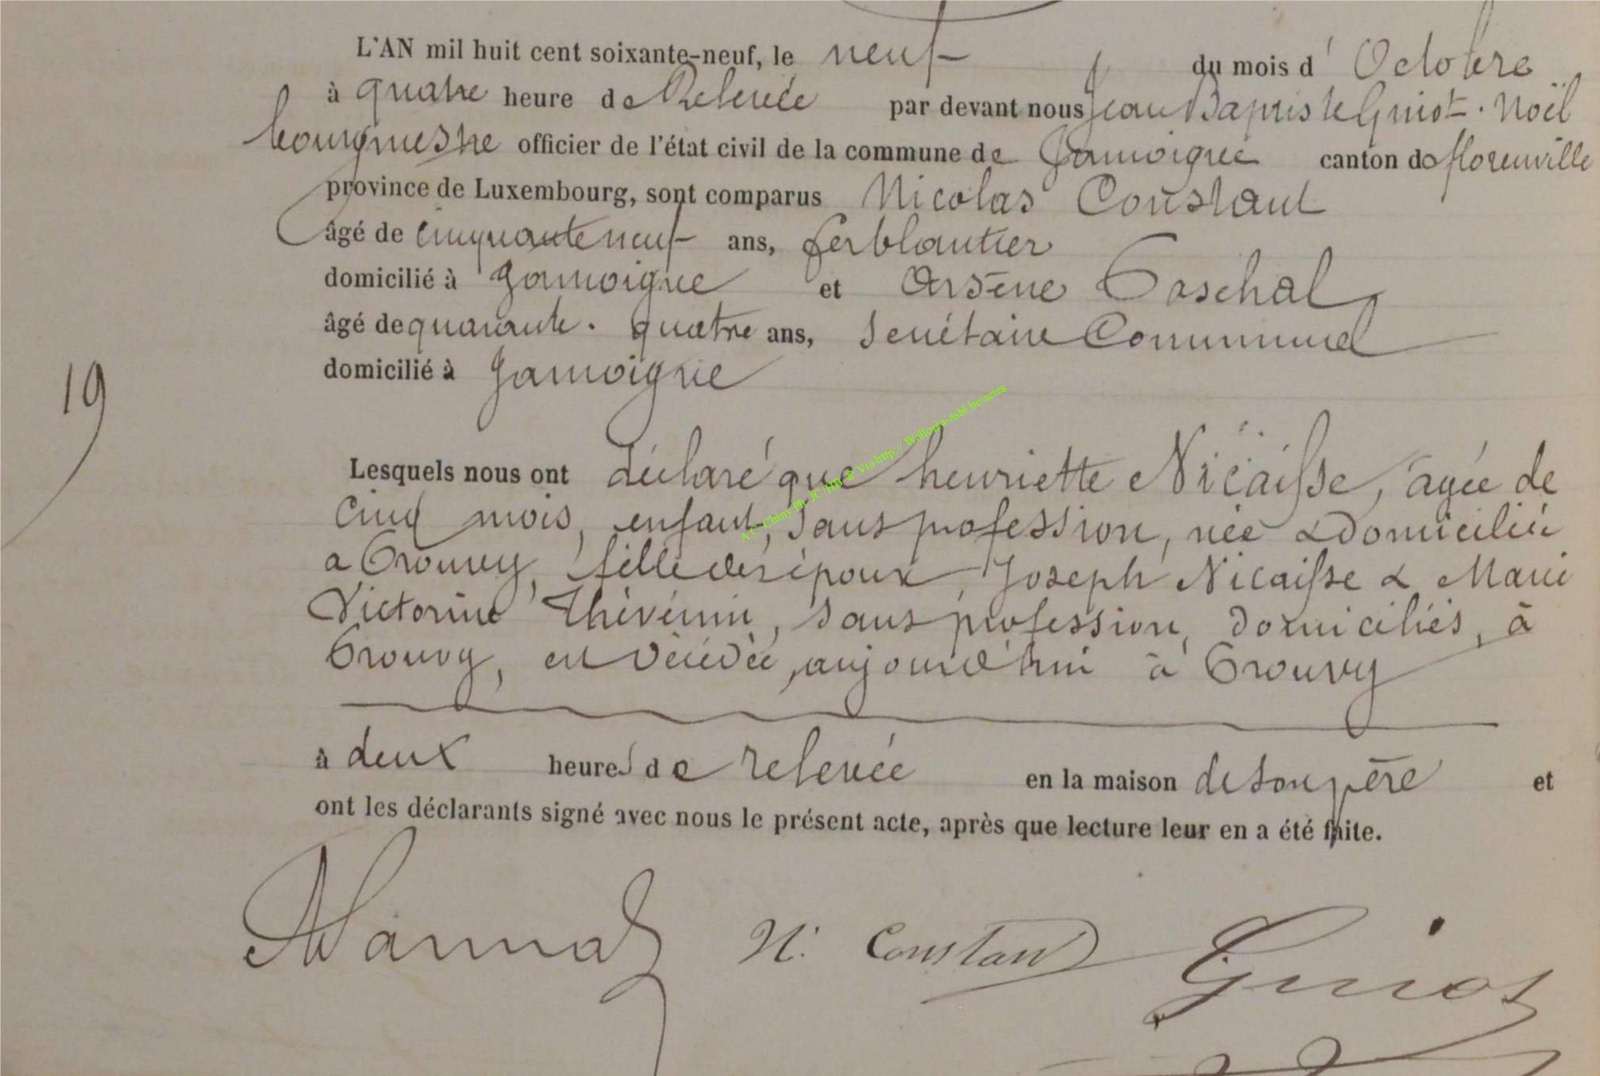 L'AN mil huit cent soixante-neuf, le neuf du mois d' Octobre
à quatre heure de Relevée par devant nous Jean Baptiste Guiot-Noël
bourgmestre officier de l'état civil de la commune de Jamoigne canton de florenville
province de Luxembourg, sont comparus Nicolas Constant
âgé de cinquante neuf ans, ferblantier
domicilié à Jamoigne et Arsène Paschal
âgé de quarante-quatre ans, Secrétaire Communal
domicilié à Jamoigne
19
Lesquels nous ont déclaré que henriette Nicaisse, agée de
cinq mois, enfant, sans profession, née & Domiciliée
a Prouvy, fille des époux Joseph Nicaisse & Marie
Victorine Thévénin, sans profession, domiciliés, à
Prouvy, est décédée, aujourd'hui à Prouvy
à deux heures de relevée en la maison de son père et
ont les déclarants signé avec nous le présent acte, après que lecture leur en a été faite.
N. Constant Guiot